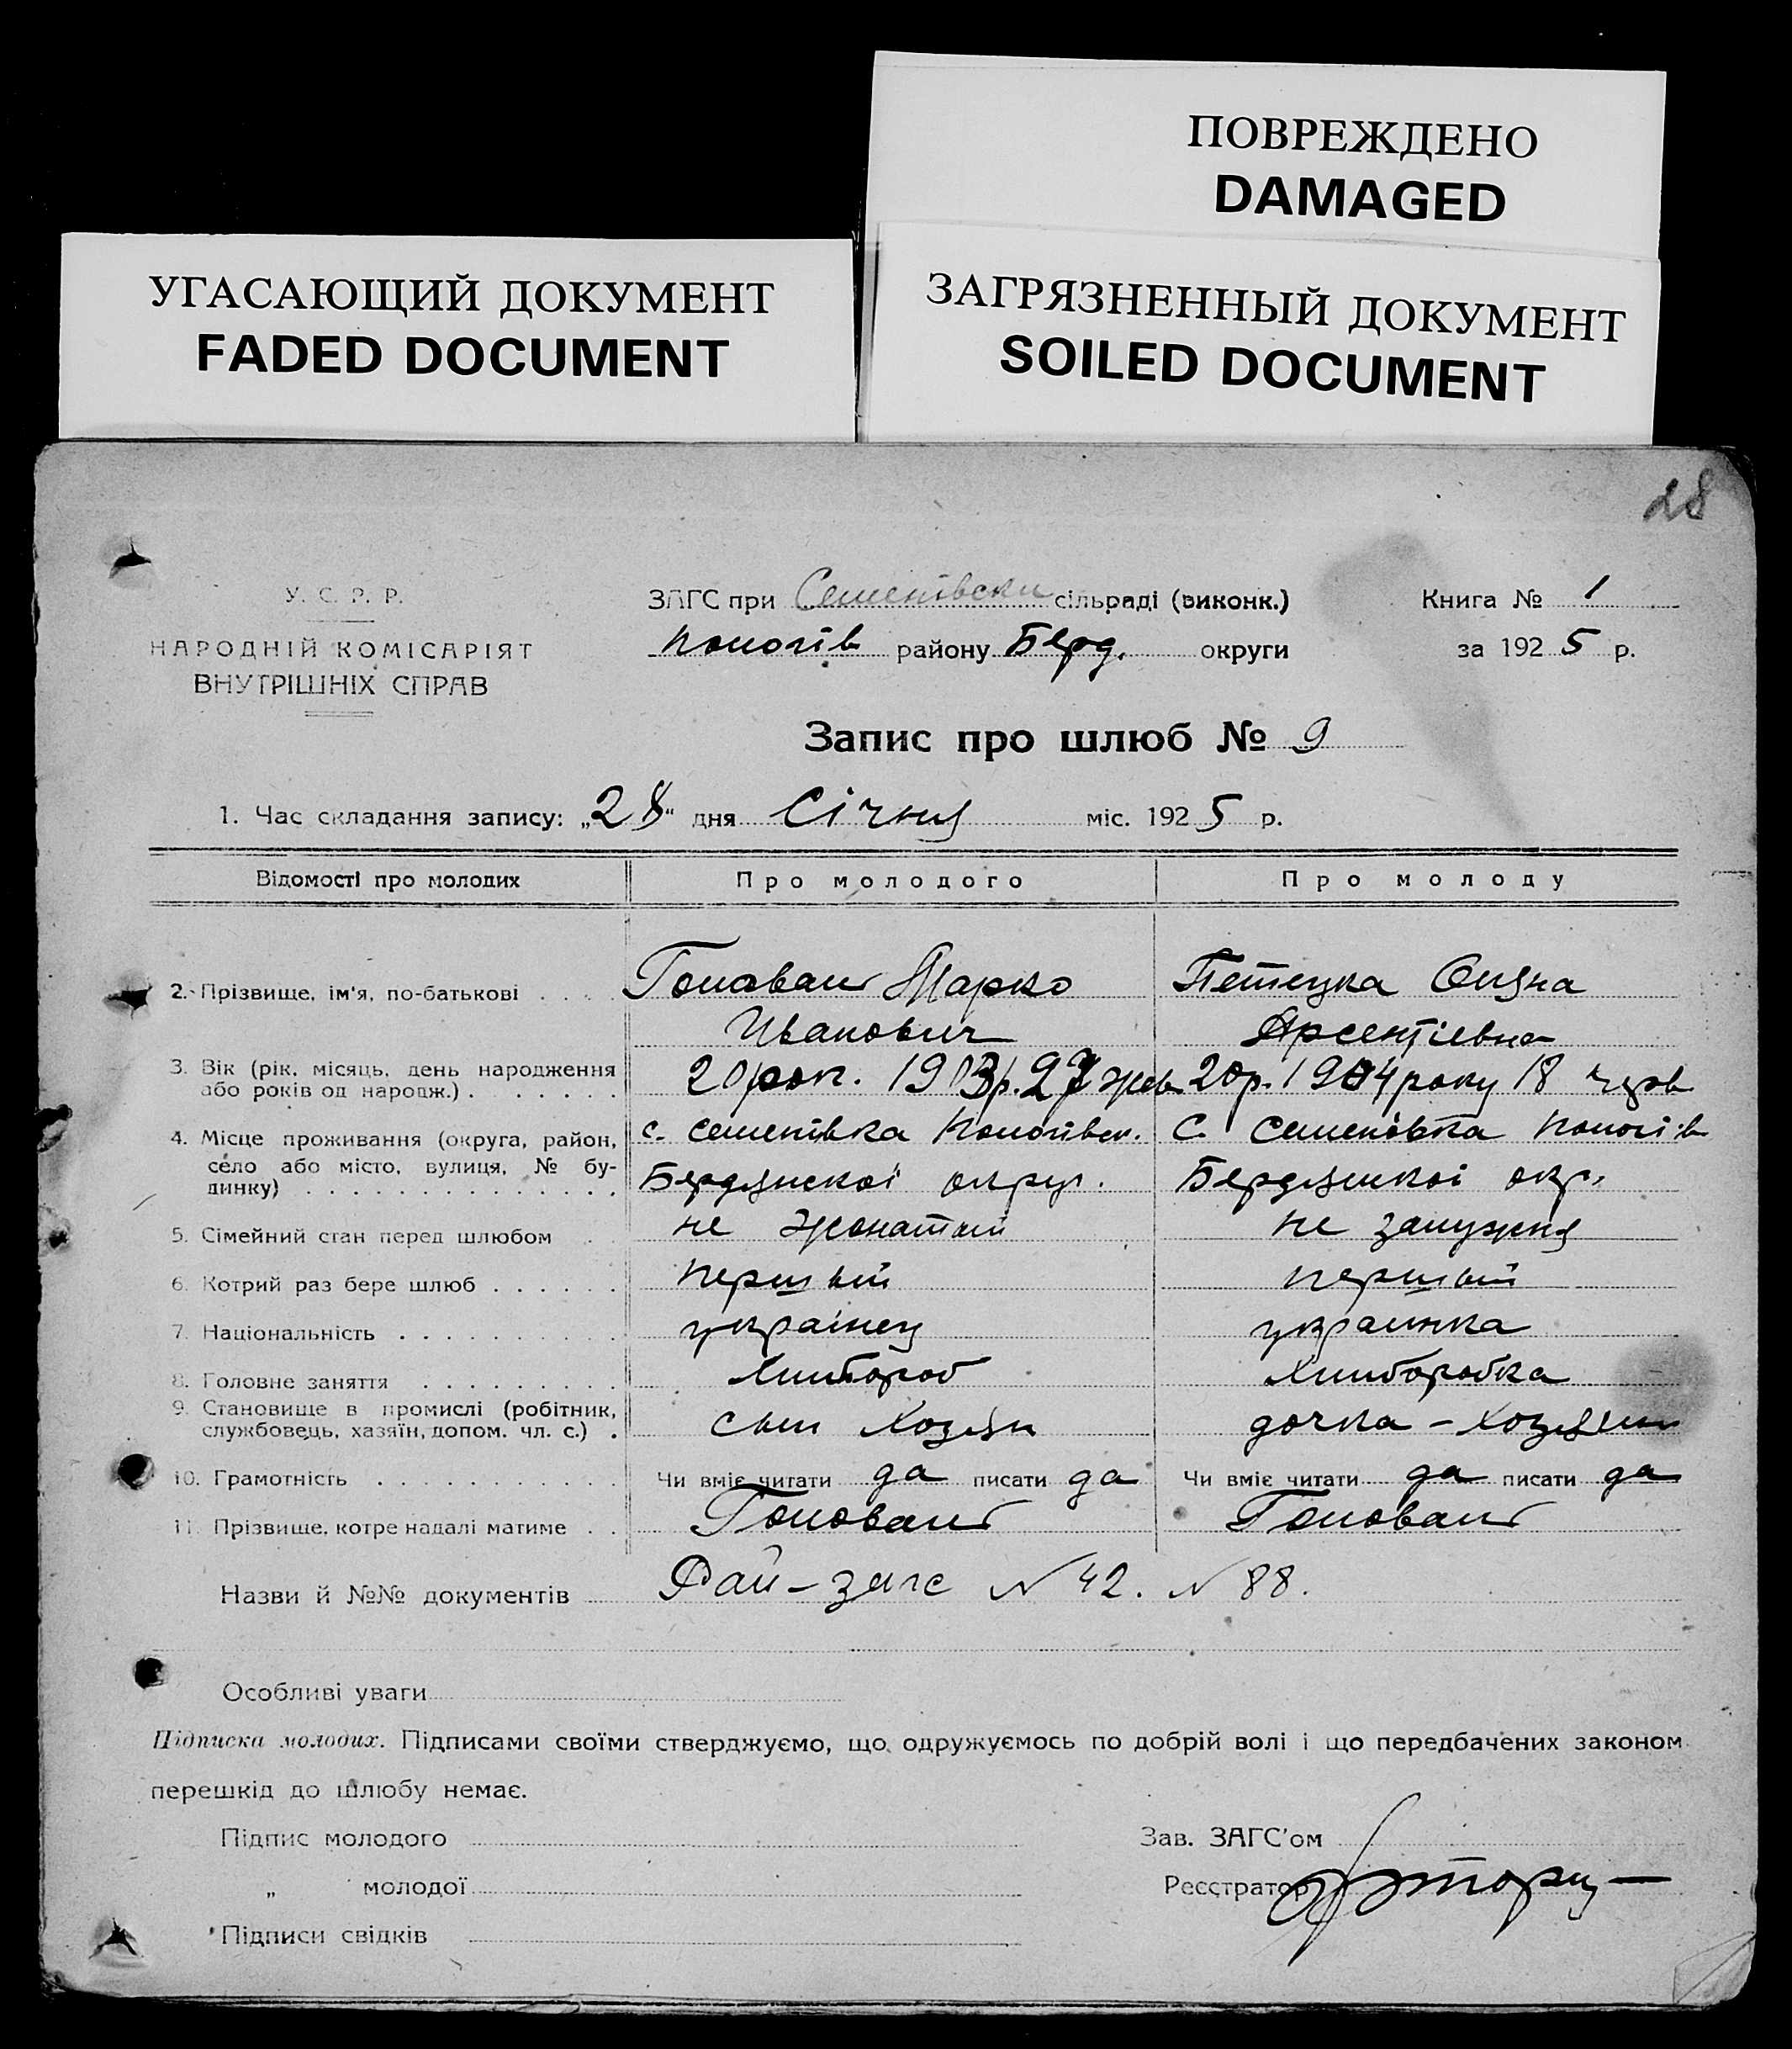 ПОВРЕЖДЕНО
DAMAGED
УГАСАЮЩИЙ ДОКУМЕНТ
FADED DOCUMENT
ЗАГРЯЗНЕННЫЙ ДОКУМЕНТ
SOILED DOCUMENT
28
У. С. Р. Р.
НАРОДНІЙ КОМІСАРІЯТ
ВНУТРІШНІХ СПРАВ
ЗАГС при Семенівски сільраді (виконк.)
Пологів району Берд. округи
Книга № 1
за 1925 р.
Запис про шлюб № 9
1. Час складання запису: „28“ дня Січня міс. 1925 р.
Відомості про молодих Про молодого Про молоду
2. Прізвище, ім'я, по-батькові . . . Головань Марко
Иванович
Оляна
Арсентіевна
3. Вік (рік, місяць, день народження або років од народж.) . . . . . . . 20 рок. 1903 р. 27 20 р. 1904 року 18 черв
4. Місце проживання (округа, район, село або місто, вулиця, № будинку) . . . . . . . . . . . . . .
с. Семенівка Пологівск.
Бердянскоі округ.
с. Семеновка Пологів
Бердянскоі окр.
5. Сімейний стан перед шлюбом . не жонатый не замужня
6. Котрий раз бере шлюб . . . . . . первый первый
7. Національність . . . . . . . . . . украінец украинка
8. Головне заняття . . . . . . . . . Хлибороб Хлиборобка
9. Становище в промислі (робітник, службовець, хазяїн, допом. чл. с.) . сын Хозяін дочка - Хозяіин
10. Грамотність . . . . . . . . . . . Чи вміє читати да писати да Чи вміє читати да писати да
11. Прізвище, котре надалі матиме . . Головань Головань
Назви й №№ документів Рай-загс N 42. N 88.
Особливі уваги
Підписка молодих. Підписами своїми стверджуємо, що одружуємось по добрій волі і що передбачених законом
перешкід до шлюбу немає.
Підпис молодого
Зав. ЗАГС'ом
„ молодої
Реєстратор
Підписи свідків